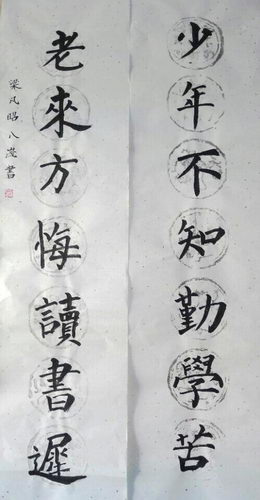 少年不知勤學苦
老來方悔讀書遲
梁凡昭八歲書